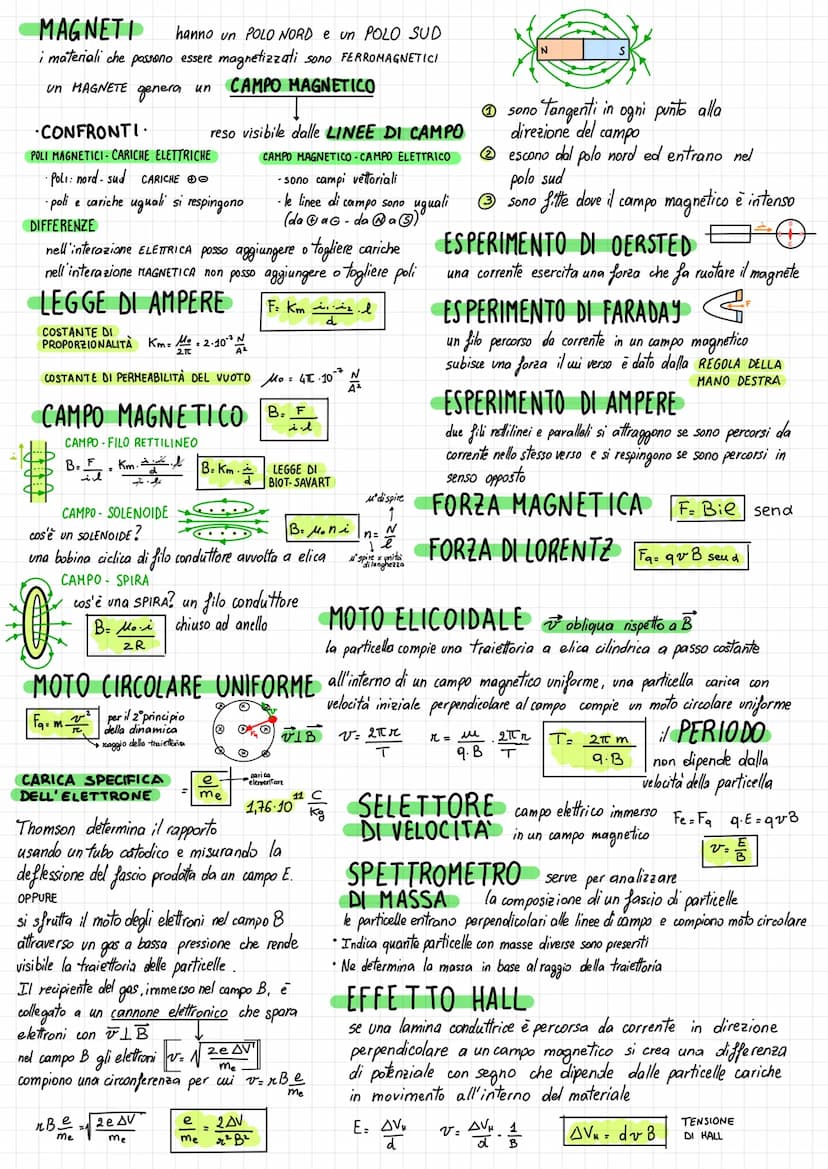 MAGNETI hanno un POLO NORD e un POLO SUD
i materiali che possono essere magnetizzati sono FERROMAGNETICI
un MAGNETE genera un CAMPO MAGNETICO
N S
reso visibile dalle LINEE DI CAMPO
① sono tangenti in ogni punto alla
direzione del campo
② escono dal polo nord ed entrano nel
polo sud
③ sono fitte dove il campo magnetico è intenso
·CONFRONTI·
POLI MAGNETICI - CARICHE ELETTRICHE
· Poli: nord - sud CARICHE ⊕⊖
· poli e cariche uguali si respingono
CAMPO MAGNETICO - CAMPO ELETTRICO
- sono campi vettoriali
- le linee di campo sono uguali
(da ⊕ a ⊖ - da Ⓝ a Ⓢ)
DIFFERENZE
nell'interazione ELETTRICA posso aggiungere o togliere cariche
nell'interazione MAGNETICA non posso aggiungere o togliere poli
LEGGE DI AMPERE F = Km i₁·i₂/d · l
COSTANTE DI
PROPORZIONALITÀ Km = μ₀/2π = 2·10⁻⁷ N/A²
COSTANTE DI PERMEABILITÀ DEL VUOTO μ₀ = 4π·10⁻⁷ N/A²
CAMPO MAGNETICO B = F/i·l
CAMPO - FILO RETTILINEO
B = F/i·l = Km · i·i/d · l / i·l B = Km · i/d LEGGE DI
BIOT-SAVART
CAMPO - SOLENOIDE
cos'è un SOLENOIDE? B = μ₀ n i n = N/l
n° di spire
n° spire x unità
di lunghezza
una bobina ciclica di filo conduttore avvolta a elica
CAMPO - SPIRA
cos'è una SPIRA? un filo conduttore
chiuso ad anello
B = μ₀·i/2R
ESPERIMENTO DI OERSTED
una corrente esercita una forza che fa ruotare il magnete
ESPERIMENTO DI FARADAY
F
un filo percorso da corrente in un campo magnetico
subisce una forza il cui verso è dato dalla REGOLA DELLA
MANO DESTRA
ESPERIMENTO DI AMPERE
due fili rettilinei e paralleli si attraggono se sono percorsi da
corrente nello stesso verso e si respingono se sono percorsi in
senso opposto
FORZA MAGNETICA F = Bil senα
FORZA DI LORENTZ Fq = qvB senα
MOTO ELICOIDALE v⃗ obliqua rispetto a B⃗
la particella compie una traiettoria a elica cilindrica a passo costante
MOTO CIRCOLARE UNIFORME all'interno di un campo magnetico uniforme, una particella carica con
velocità iniziale perpendicolare al campo compie un moto circolare uniforme
Fq = m v²/r per il 2° principio
della dinamica
raggio della traiettoria
v⃗⊥B⃗ v = 2πr/T r = m/q·B · 2πr/T T = 2πm/q·B
il PERIODO
non dipende dalla
velocità della particella
CARICA SPECIFICA
DELL'ELETTRONE = e/me carica
elementare
1,76·10¹¹ C/kg
Thomson determina il rapporto
usando un tubo catodico e misurando la
deflessione del fascio prodotta da un campo E.
OPPURE
si sfrutta il moto degli elettroni nel campo B
attraverso un gas a bassa pressione che rende
visibile la traiettoria delle particelle.
Il recipiente del gas, immerso nel campo B, è
collegato a un cannone elettronico che spara
elettroni con v⃗⊥B⃗
nel campo B gli elettroni v = √2eΔV/me
compiono una circonferenza per cui v = rB e/me
rB e/me = √2eΔV/me e/me = 2ΔV/r²B²
SELETTORE
DI VELOCITÀ
campo elettrico immerso
in un campo magnetico
Fe = Fq q·E = qvB
v = E/B
SPETTROMETRO
DI MASSA
serve per analizzare
la composizione di un fascio di particelle
le particelle entrano perpendicolari alle linee di campo e compiono moto circolare
· Indica quante particelle con masse diverse sono presenti
· Ne determina la massa in base al raggio della traiettoria
EFFETTO HALL
se una lamina conduttrice è percorsa da corrente in direzione
perpendicolare a un campo magnetico si crea una differenza
di potenziale con segno che dipende dalle particelle cariche
in movimento all'interno del materiale
E = ΔVH/d v = ΔVH/d · 1/B ΔVH = dvB TENSIONE
DI HALL